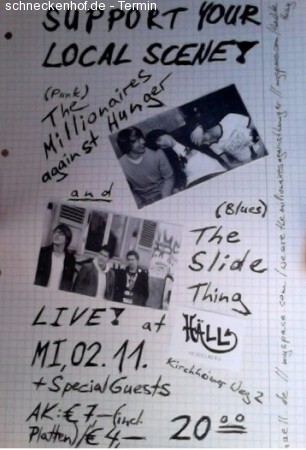 schneckenhof.de - Termin
SUPPORT YOUR
LOCAL SCENE!
(Punk)
The
Millionaires
against Hunger
and
(Blues)
The
Slide
Thing
LIVE! at
HÄLL
MI, 02. 11.
Kirchheimer Weg 2
+ Special Guests
AK: € 7,- (incl.
Platten)/€ 4,-
20 00